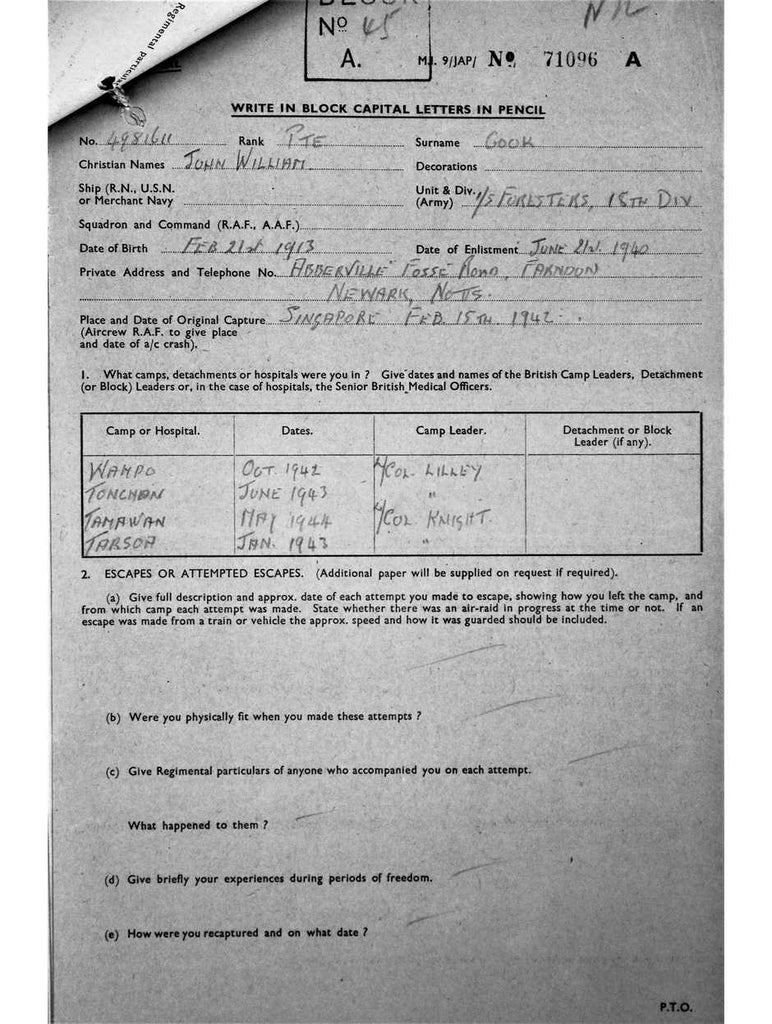 Regimental particular
BLOCK
Nº 45
A.
M.I. 9/JAP/ Nº 71096 A
WRITE IN BLOCK CAPITAL LETTERS IN PENCIL
No. 4981611 Rank PTE Surname COOK
Christian Names JOHN WILLIAM. Decorations
Ship (R.N., U.S.N. or Merchant Navy
Unit & Div. (Army) 1/5 FORESTERS, 18TH DIV
Squadron and Command (R.A.F., A.A.F.)
Date of Birth FEB 21st 1913 Date of Enlistment JUNE 21st. 1940
Private Address and Telephone No. "ABBERVILLE" FOSSE ROAD, FARNDON
NEWARK, NOTTS.
Place and Date of Original Capture SINGAPORE FEB. 15TH. 1942.
(Aircrew R.A.F. to give place
and date of a/c crash).
1. What camps, detachments or hospitals were you in ? Give dates and names of the British Camp Leaders, Detachment
(or Block) Leaders or, in the case of hospitals, the Senior British Medical Officers.
Camp or Hospital. Dates. Camp Leader. Detachment or Block Leader (if any).
WAMPO OCT. 1942 L/COL. LILLEY
TONCHAN JUNE 1943 "
TAMAWAN MAY 1944 L/COL KNIGHT.
TARSOA JAN. 1943 "
2. ESCAPES OR ATTEMPTED ESCAPES. (Additional paper will be supplied on request if required).
(a) Give full description and approx. date of each attempt you made to escape, showing how you left the camp, and
from which camp each attempt was made. State whether there was an air-raid in progress at the time or not. If an
escape was made from a train or vehicle the approx. speed and how it was guarded should be included.
(b) Were you physically fit when you made these attempts ?
(c) Give Regimental particulars of anyone who accompanied you on each attempt.
What happened to them ?
(d) Give briefly your experiences during periods of freedom.
(e) How were you recaptured and on what date ?
P.T.O.